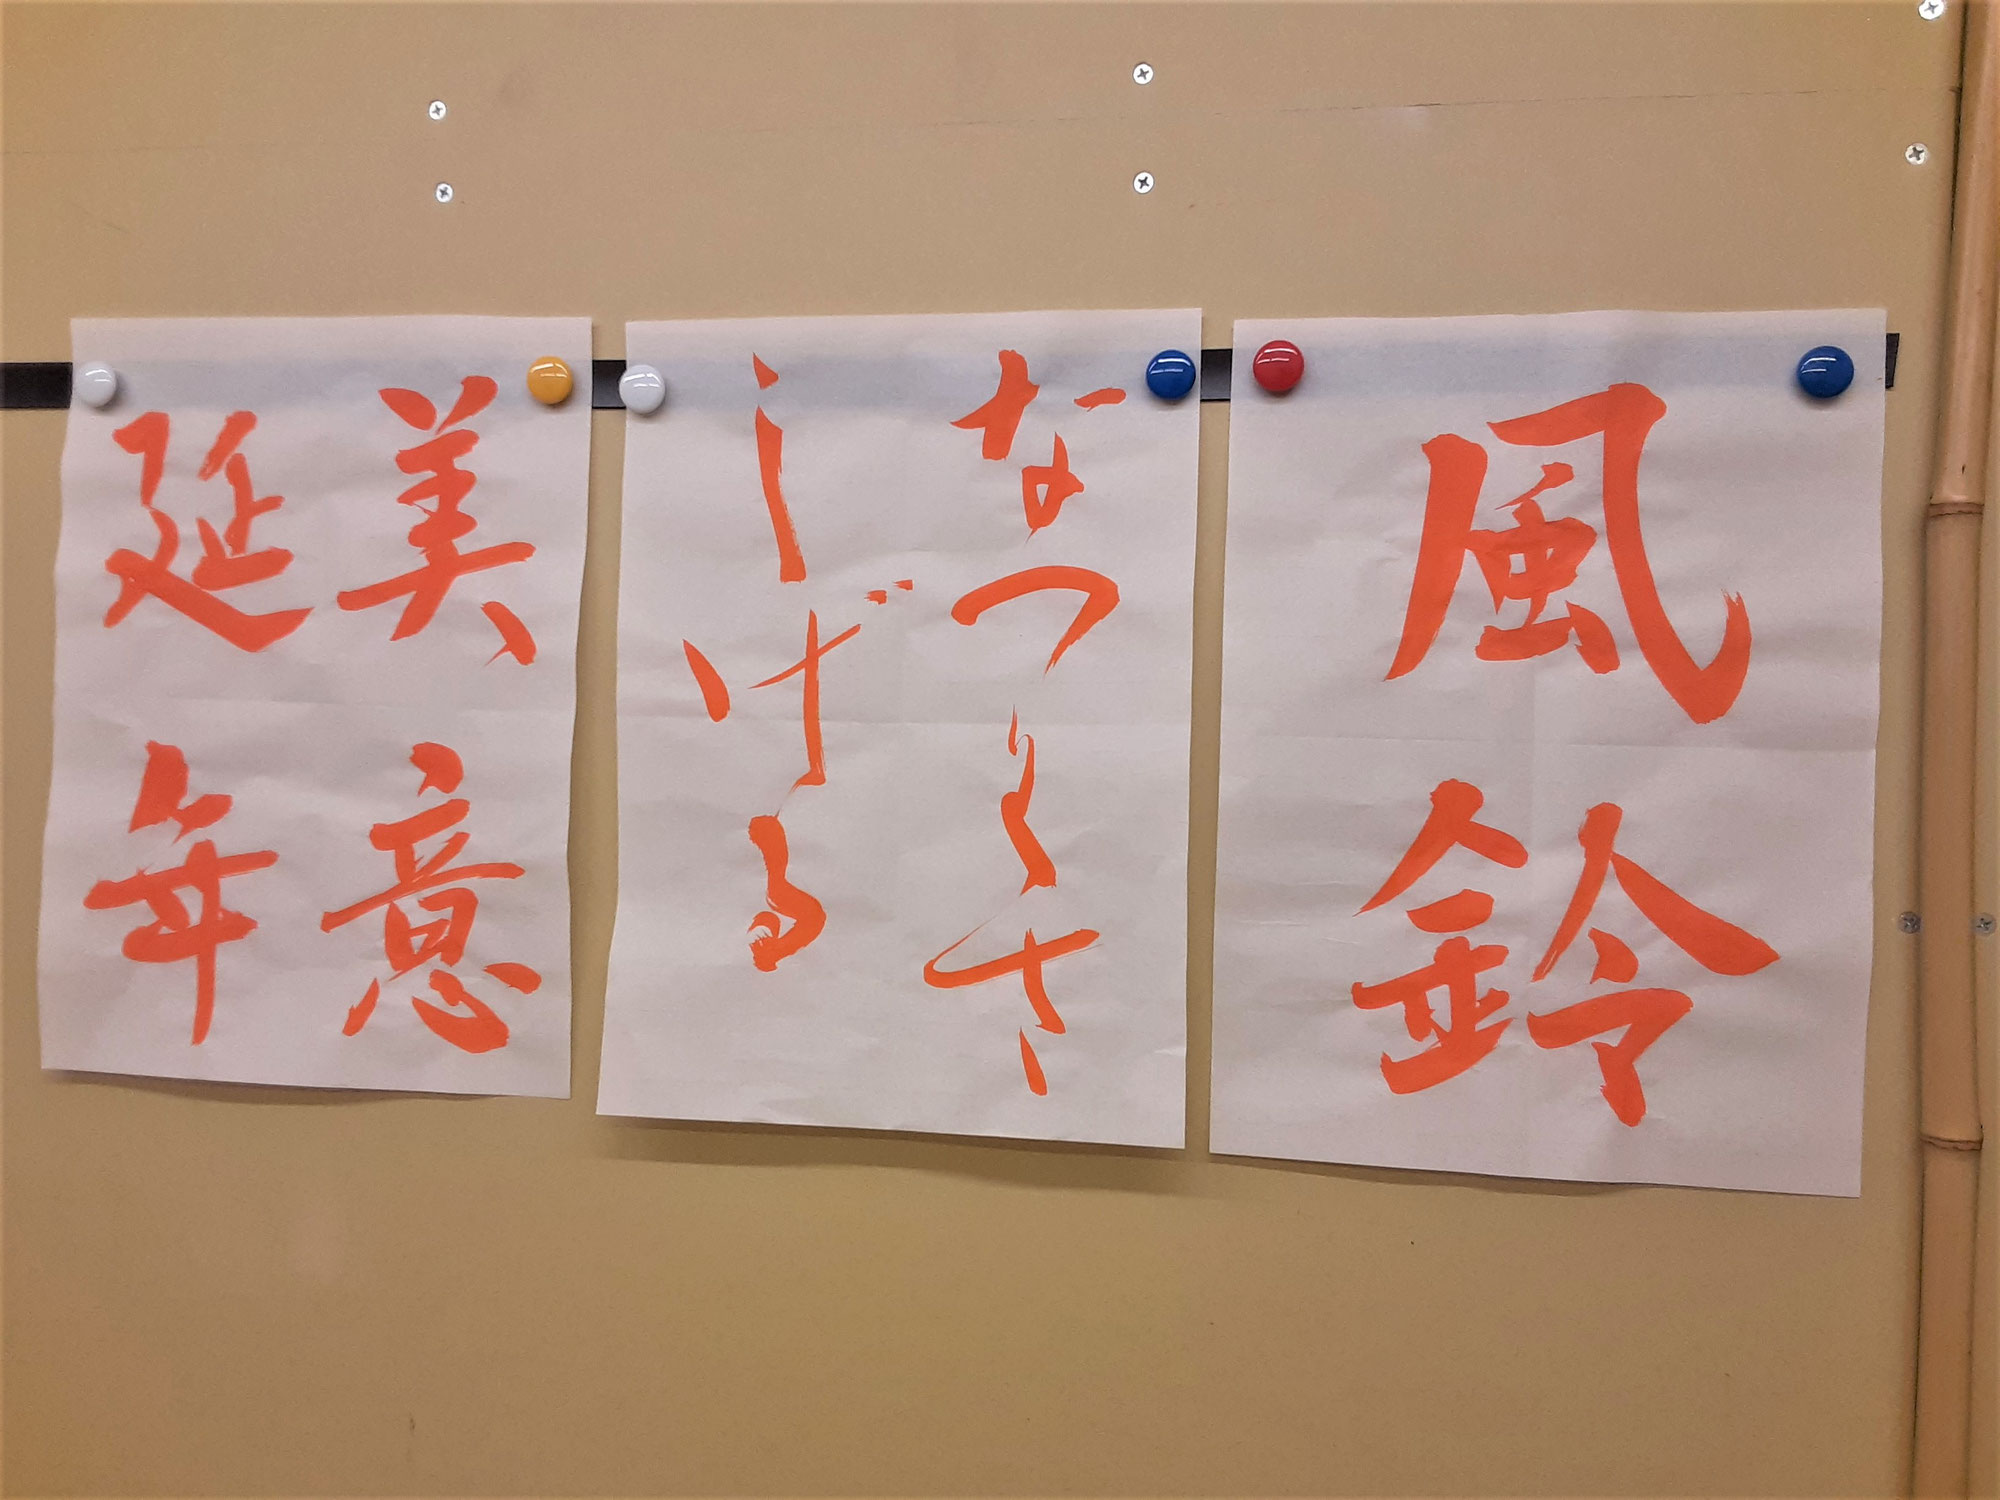 風鈴
なつくさ
しげる
美意
延年